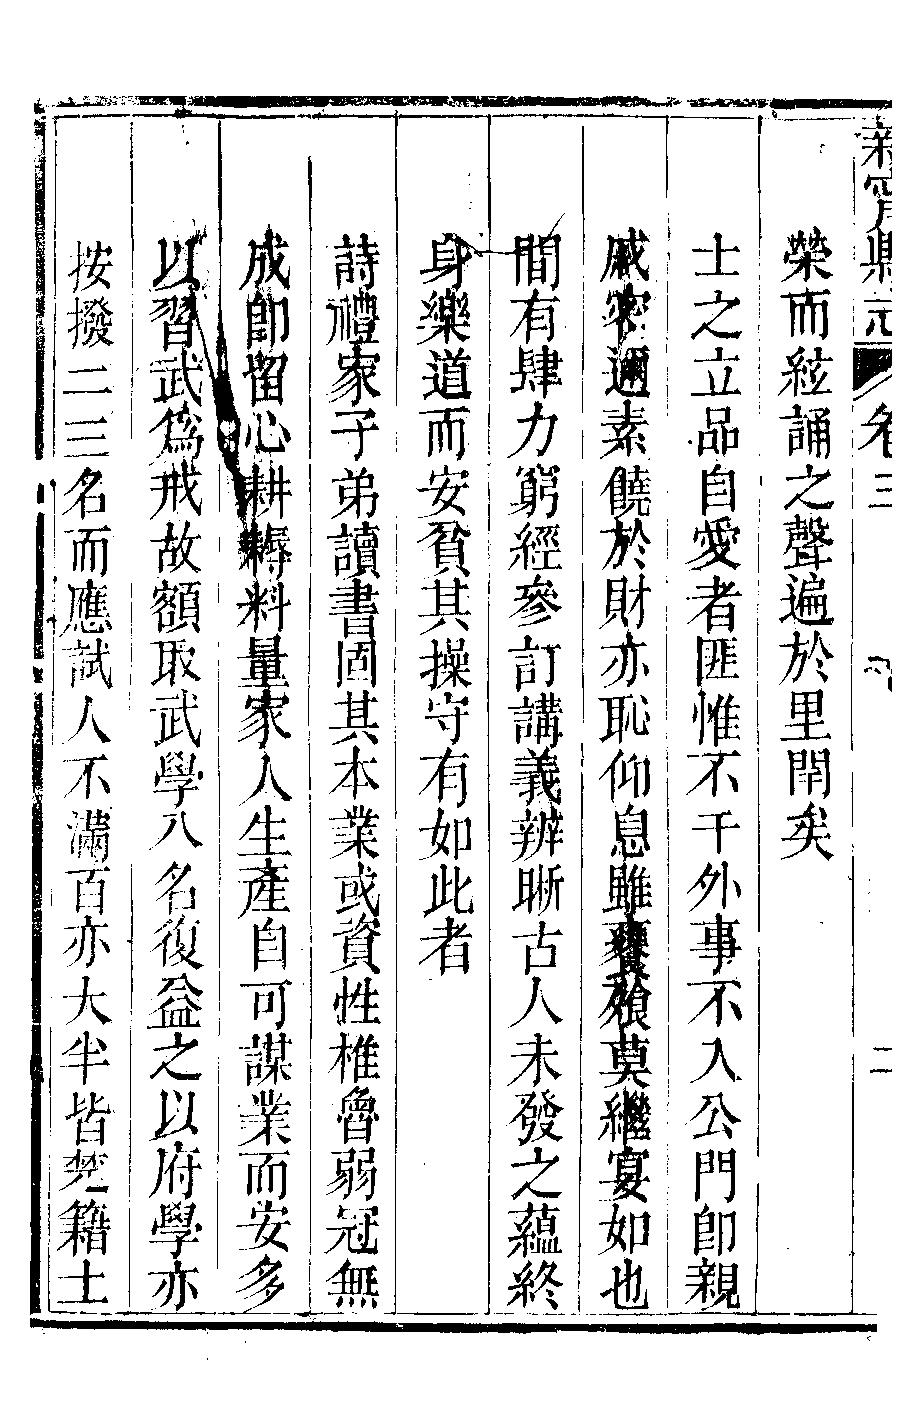 新寧縣志 卷三 二
榮而絃誦之聲遍於里閈矣
士之立品自愛者匪惟不干外事不入公門即親
戚密邇素饒於財亦恥仰息雖饔飱莫繼宴如也
間有肆力窮經參訂講義辨晰古人未發之蘊終
身樂道而安貧其操守有如此者
詩禮家子弟讀書固其本業或資性椎魯弱冠無
成即留心耕耨料量家人生產自可謀業而安多
以習武爲戒故額取武學八名復益之以府學亦
按撥二三名而應試人不滿百亦大半皆楚籍士